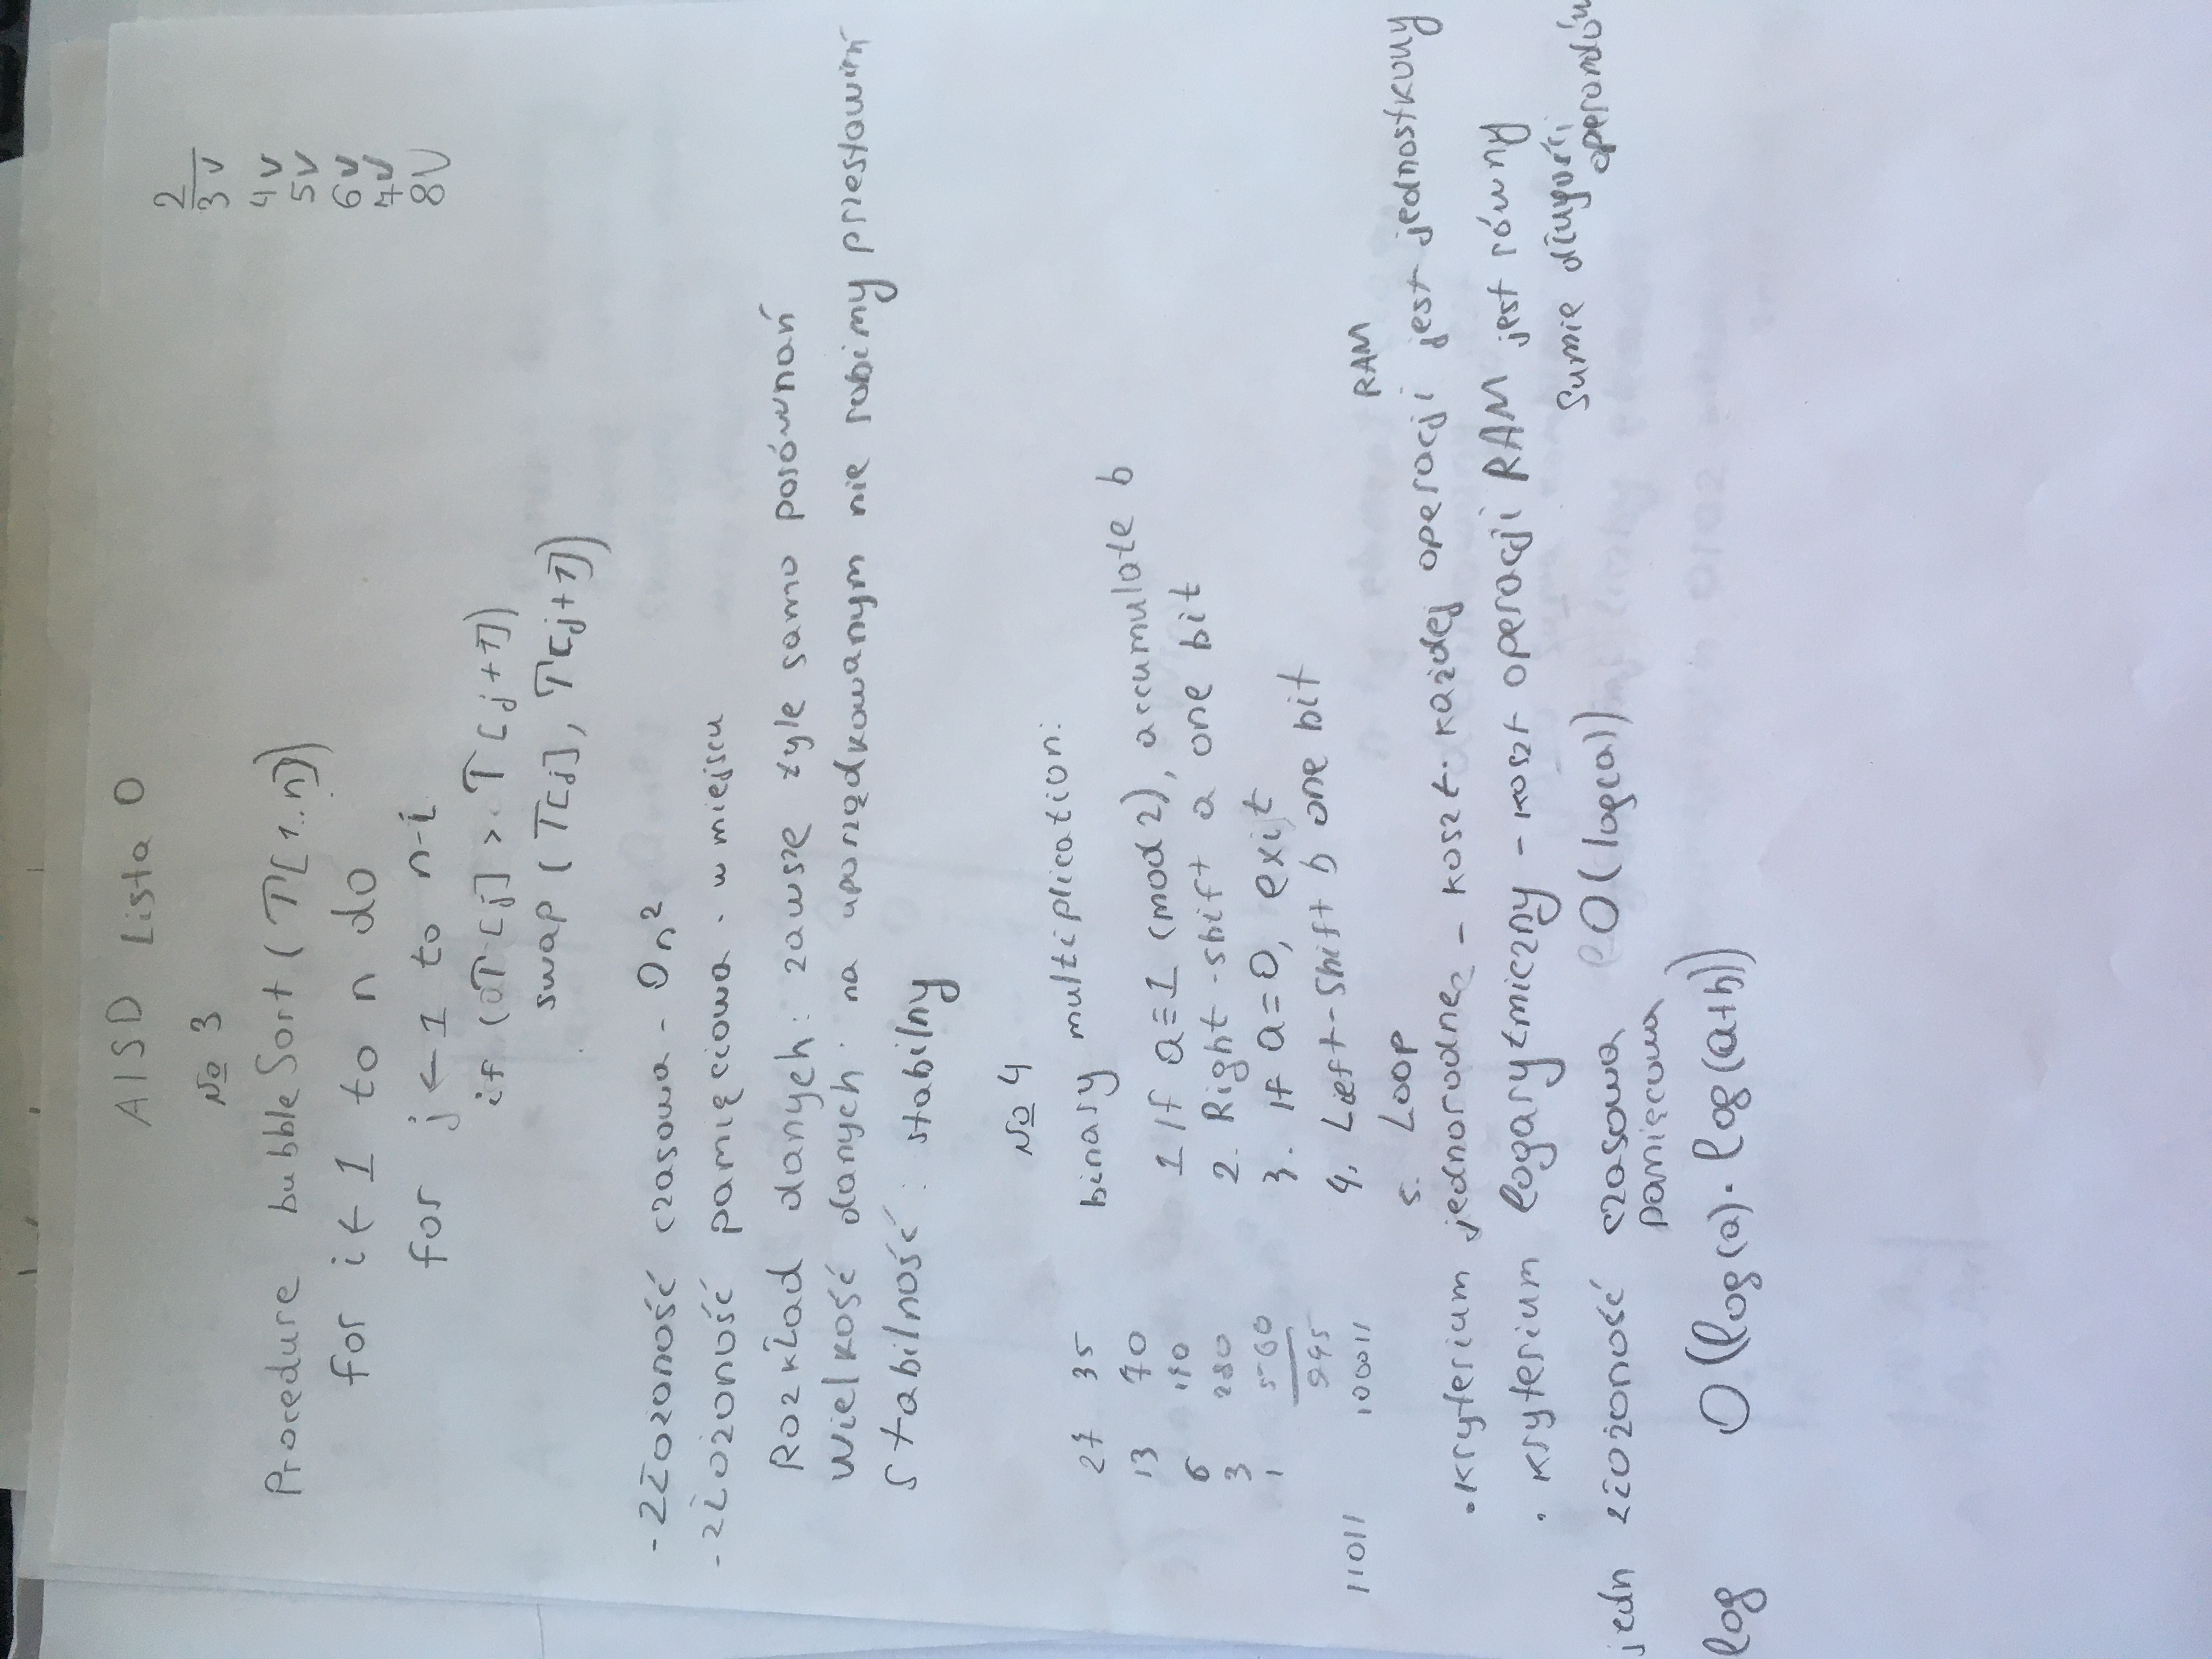 AISD Lista 0
№ 3
2
3 v
4 v
5 v
6 v
7 v
8 v
Procedure bubbleSort (T[1..n])
for i ← 1 to n do
for j ← 1 to n-i
if (T[j] > T[j+1])
swap (T[j], T[j+1])
- Złożoność czasowa - On²
- złożoność pamięciowa - w miejscu
Rozkład danych: zawsze tyle samo porównań
Wielkość danych: na uporządkowanym nie robimy przestawień
Stabilność: stabilny
№ 4
27 35
13 70
6
3 280
1 560
945
11011 100011
binary multiplication:
1 If a≡1 (mod 2), accumulate b
2. Right-shift a one bit
3. If a=0, exit
4. Left-Shift b one bit
5. Loop
RAM
• Kryterium jednorodne - koszt każdej operacji jest jednostkowy
• Kryterium logarytmiczny - koszt operacji RAM jest równy
sumie długości
operandów
jedn złożoność czasowa O(log(a))
pamięcowa
log O(log(a)·log(a+b))